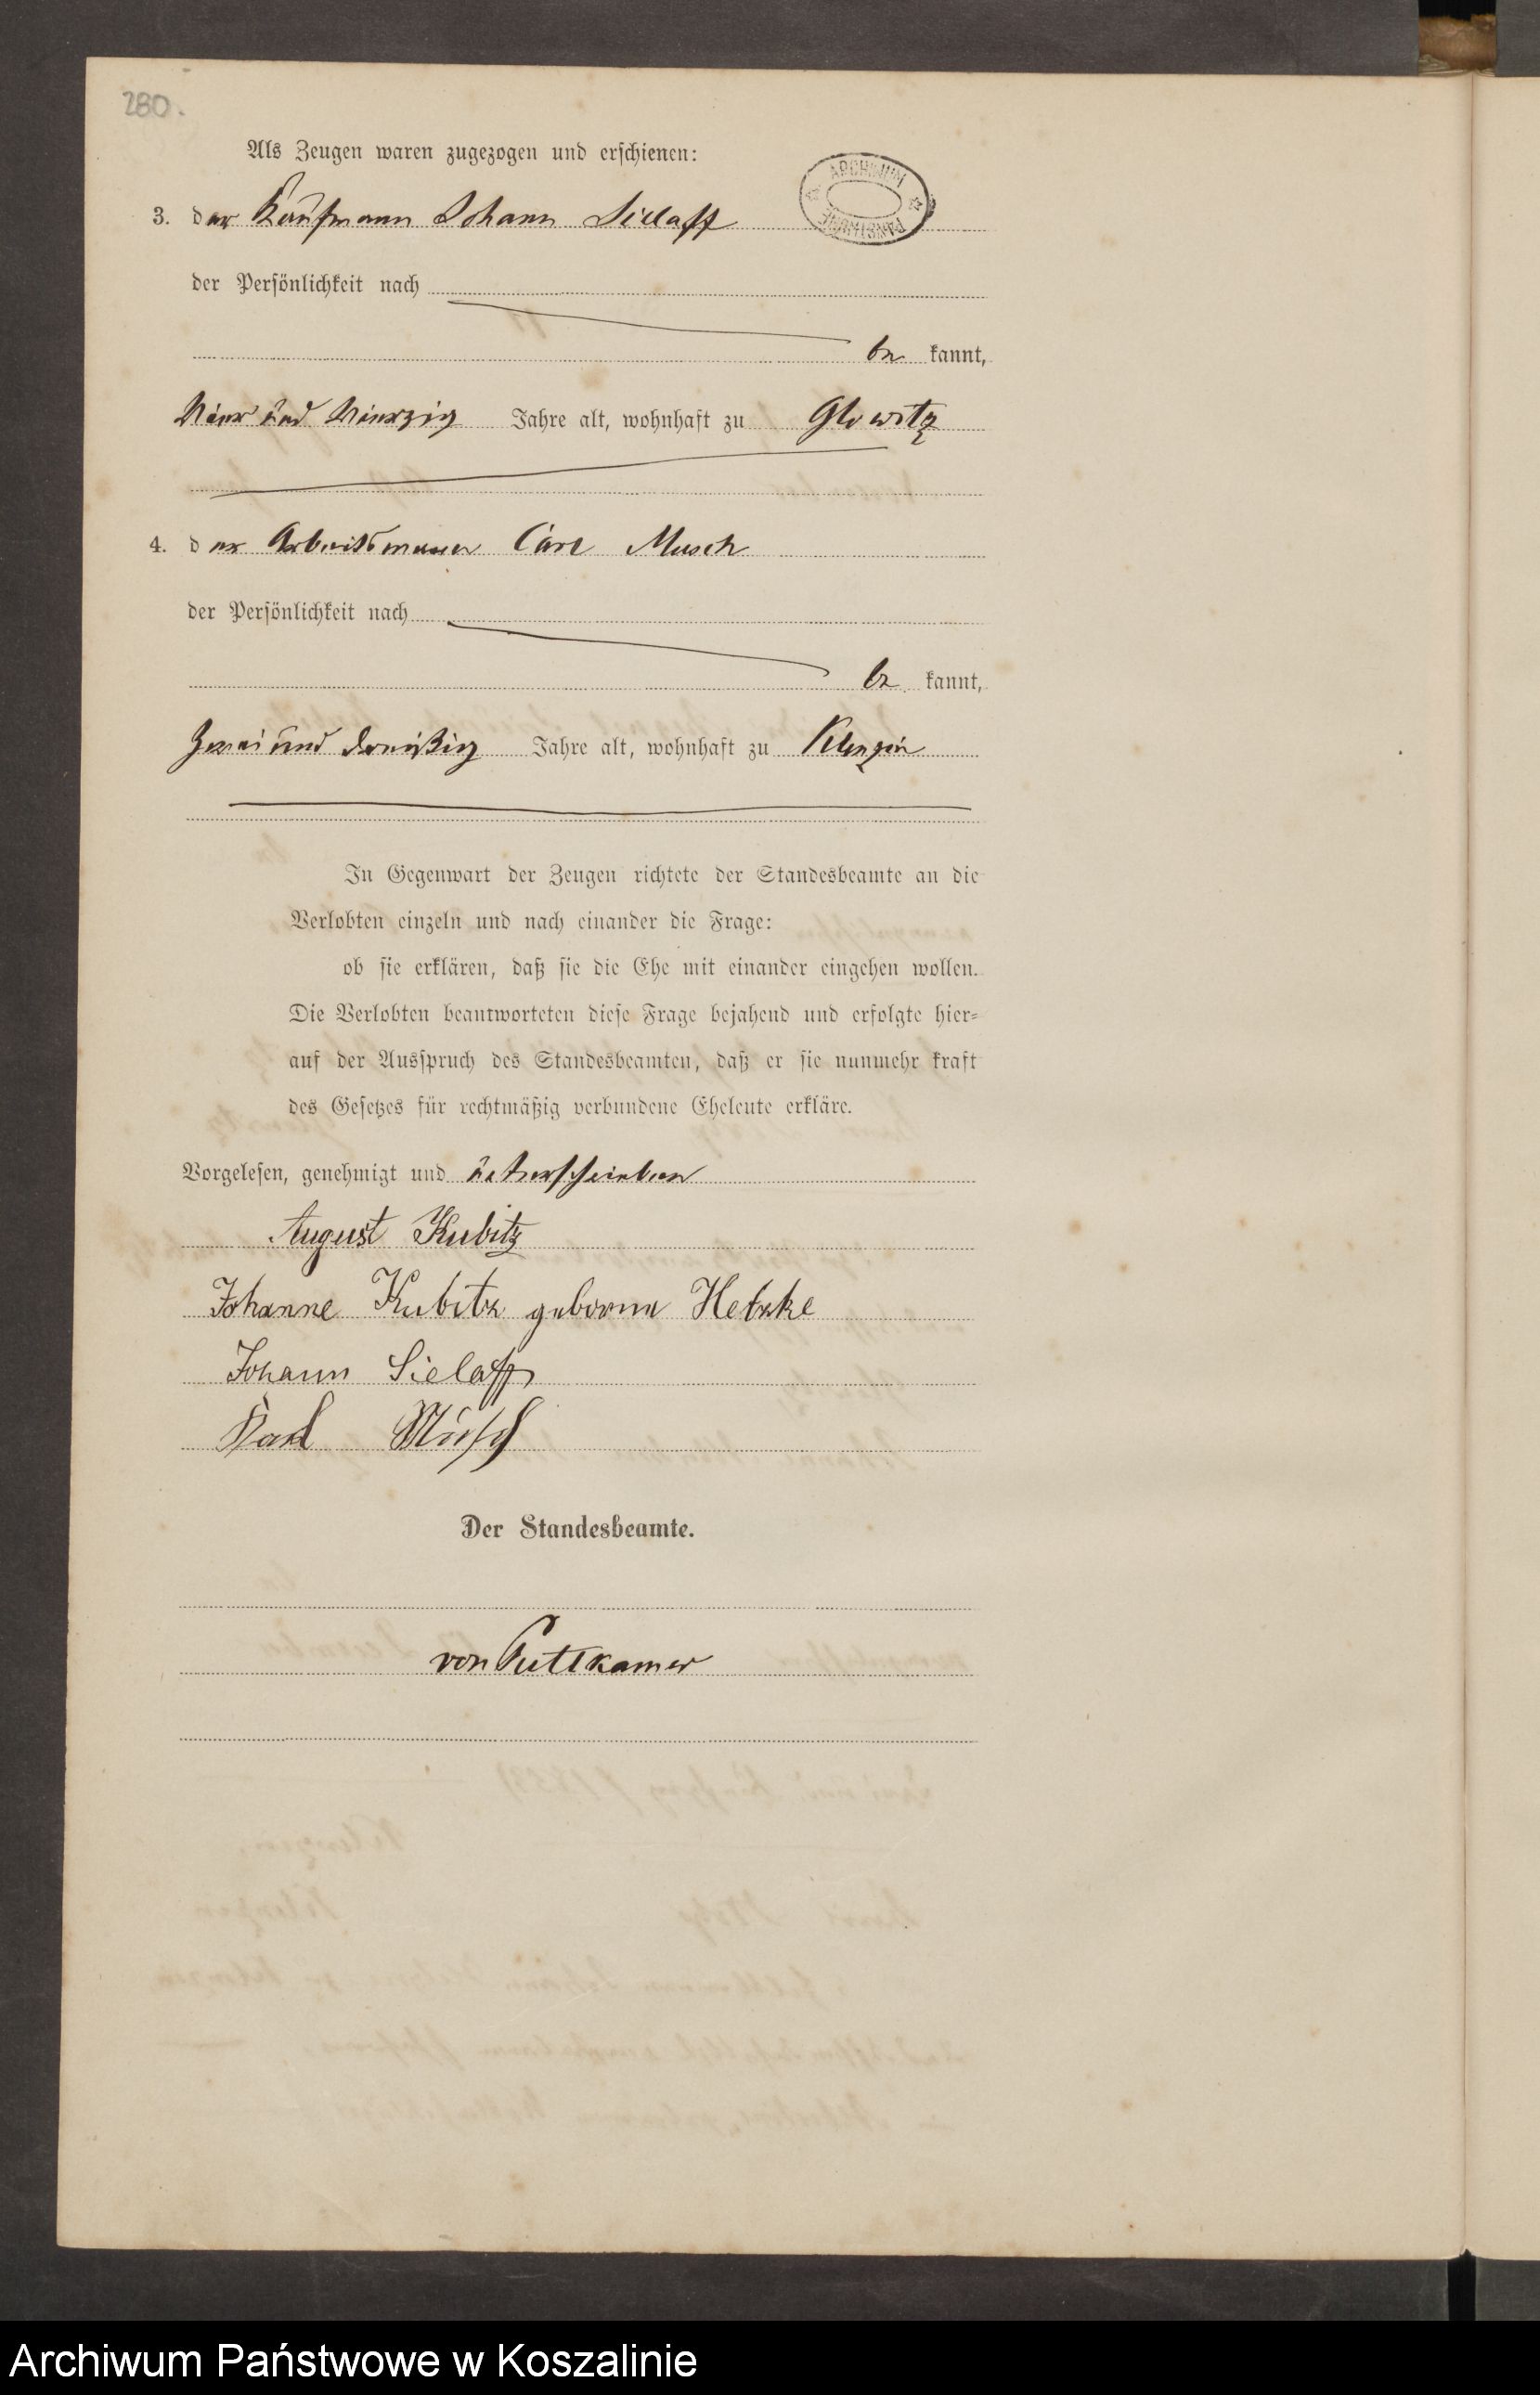 280.
Als Zeugen waren zugezogen und erschienen:
ARCHIWUM
PAŃSTWOWE
3. der Kaufmann Johann Siellaff
der Persönlichkeit nach
be kannt,
Vier und Vierzig Jahre alt, wohnhaft zu Glowitz
4. der Arbeitsmann Carl Musch
der Persönlichkeit nach
be kannt,
Zwei und dreißig Jahre alt, wohnhaft zu Klenzin
In Gegenwart der Zeugen richtete der Standesbeamte an die
Verlobten einzeln und nach einander die Frage:
ob sie erklären, daß sie die Ehe mit einander eingehen wollen.
Die Verlobten beantworteten diese Frage bejahend und erfolgte hier-
auf der Ausspruch des Standesbeamten, daß er sie nunmehr kraft
des Gesetzes für rechtmäßig verbundene Eheleute erkläre.
Vorgelesen, genehmigt und unterschrieben
August Kubitz
Johanne Kubitz geborne Hetzke
Johann Sielaff
Karl Musch
Der Standesbeamte.
von Puttkamer
Archiwum Państwowe w Koszalinie